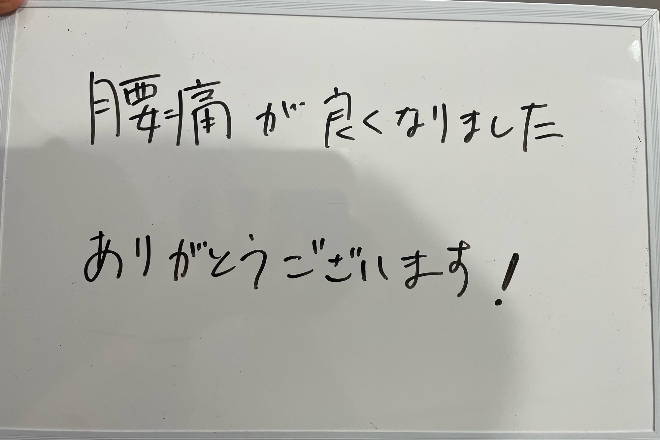 腰痛が良くなりました
ありがとうございます!